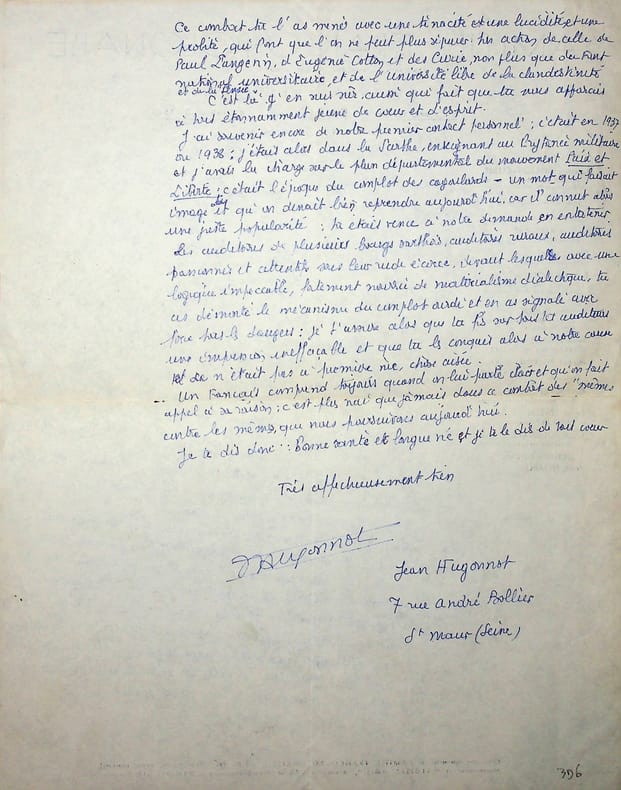 Ce combat tu l'as mené avec une ténacité et une lucidité, et une
probité, qui font que l'on ne peut plus séparer ton action de celle de
Paul Langevin, d'Eugénie Cotton et des Curie, non plus que du Front
national universitaire, et de l'université libre de la clandestinité
et de la Pensée.
C'est là, j'en suis sûr aussi qui fait que tu nous apparais
à tous étonnamment jeune de coeur et d'esprit.
J'ai souvenir encore de notre premier contact personnel ; c'était en 1937
ou 1938 ; j'étais alors dans la Sarthe, enseignant au Prytanée militaire
et j'avais la charge sur le plan départemental du mouvement Paix et
Liberté ; c'était l'époque du complot des cagoulards - un mot qui faisait
image et qu'on devrait bien reprendre aujourd'hui, car il connut alors
une juste popularité : tu étais venu à notre demande en entretenir
des auditoires de plusieurs bourgs sarthois, auditoires ruraux, auditoires
passionnés et attentifs sous leur rude écorce, devant lesquels avec une
logique impeccable, fortement nourrie de matérialisme dialectique, tu
as démonté le mécanisme du complot ourdi et en as signalé avec
force tous les dangers : je t'assure alors que tu fis sur tous les auditeurs
une impression ineffaçable et que tu les conquis alors à notre cause
et ce n'était pas à première vue, chose aisée.
Un Français comprend toujours quand on lui parle clair et qu'on fait
appel à sa raison ; c'est plus vrai que jamais dans ce combat des "mêmes
contre les mêmes, que nous poursuivons aujourd'hui.
Je te dis donc : Bonne santé et longue vie et je te le dis de tout coeur
Très affectueusement tien
JHugonnot
Jean Hugonnot
7 rue André Bollier
St Maur (Seine)
396